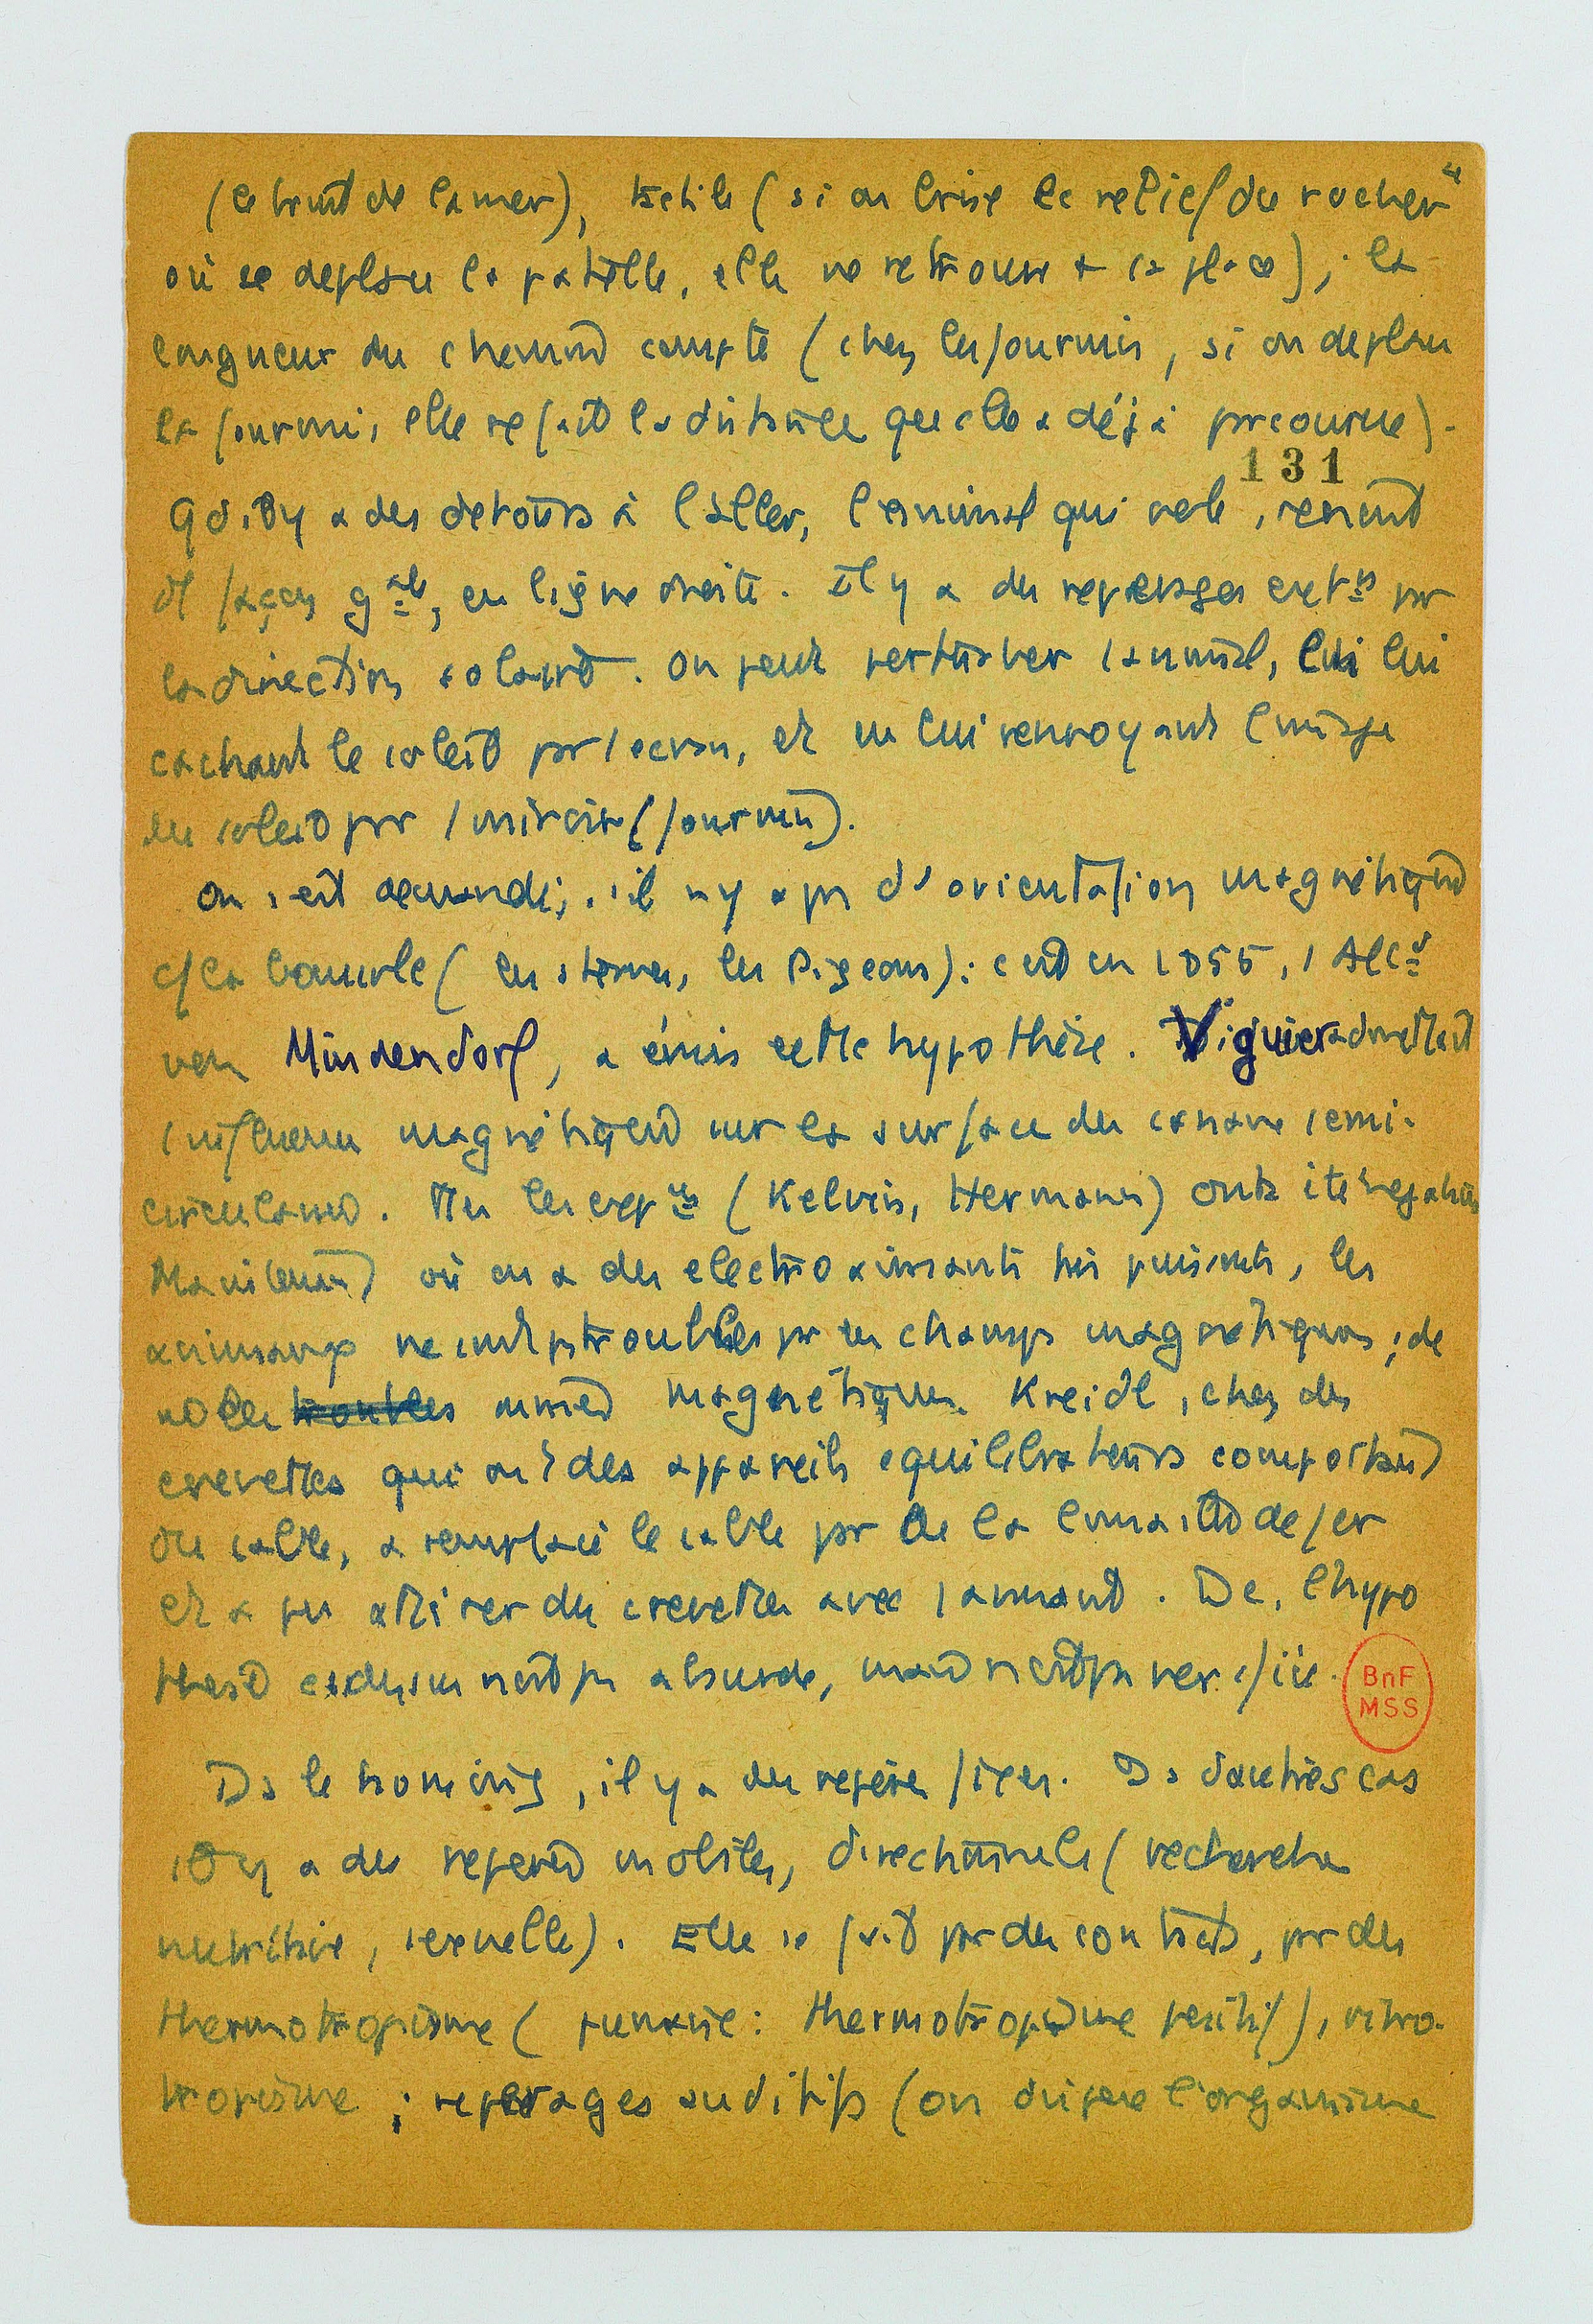 (le bruit de la mer), tactile (si on brise le relief du rocher
où se deplace la patelle, elle ne retrouve + sa place) ; la
longueur du chemin compte (chez les fourmis, si on deplace
la fourmi, elle refait la distance que elle a déjà parcourue).
131
Qd il y a des detours à l'aller, l'animal qui vole, revient
de façon gale, en ligne droite. Il y a des reperages ext pr
la direction solaire. On peut perturber l'animal, lui
cachant le soleil par 1 ecran, et en lui renvoyant l'image
du soleil par 1 miroir (fourmi).
On s'est demandé, s'il n'y a pas d'orientation magnétique
c/ la boussole (les sternes, les Pigeons) : c'est en 1855, 1 Alld
von Mindendorf, a émis cette hypothèse. Viguier admettait
l'influence magnétique sur la surface des canaux semi-
circulaires. Ms les exp (Kelvin, Hermann) ont été negatives
où on a des electroaimants très puissants, les
animaux ne sont pas troublés par les champs magnétiques ; de
magnétiques. Kreidl, chez des
crevettes qui ont des appareils equilibrateurs comportant
du sable, a remplacé le sable par de la limaille de fer
et a pu attirer des crevettes avec 1 aimant. Dc, l'hypo
thèse n'est pas absurde, mais n'est pas verifiée.
BnF
MSS
Ds le homing, il y a des repères fixes. Ds d'autres cas
il y a des repères mobiles, directionnels (recherche
nutritive, sexuelle). Elle se fait par des contacts, par des
thermotropisme (punaise : thermotropisme positif),
tropisme ; reperages auditifs (on l'organisme